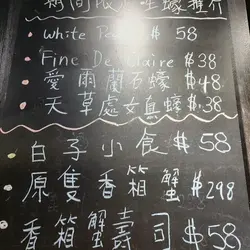 期間限定生蠔推介
White Pearl $58
Fine De Claire $38
愛爾蘭石蠔 $48
天草處女魚蠔 $38
白子小食 $58
原隻香箱蟹 $298
香箱蟹壽司 $58